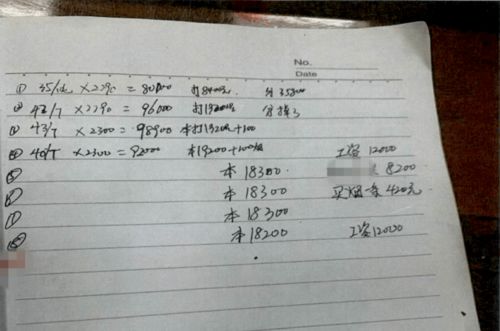 No.
Date
① 35/ ×2290 = 80000 打8400元 分35800
② 42/T ×2290 = 96000 打13200 分掉了
③ 43/T ×2300 = 98900 本打13200+100
④ 40/T ×2300 = 92000 本19200+100 工资12000
⑤ 本18300 8200
⑥ 本18300 买烟一条420元
⑦ 本18300
⑧ 本18200 工资12000